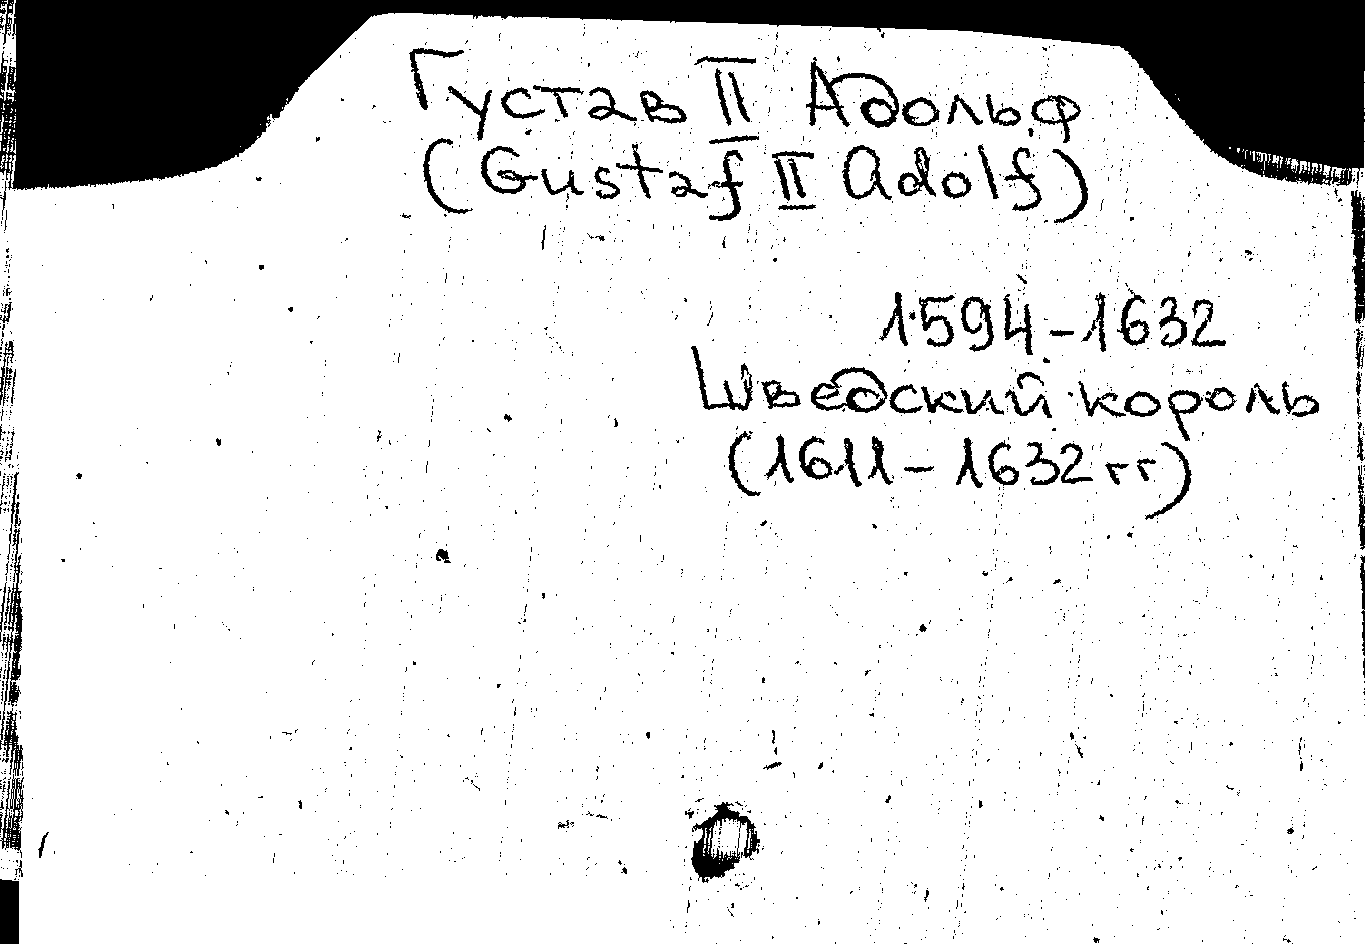 Густав II Адольф
(Gustaf II Adolf)
1594-1632
Шведский король
(1611-1632 гг)